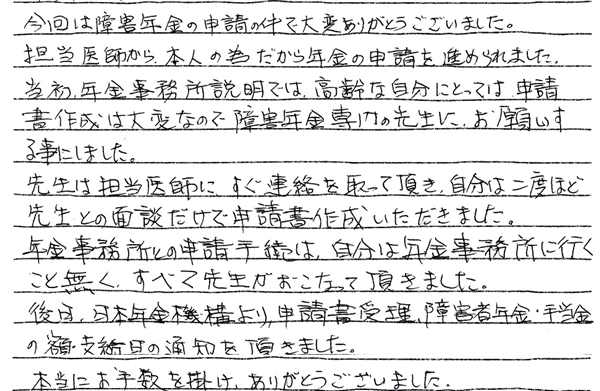 今回は障害年金の申請の件で大変ありがとうございました。
担当医師から、本人の為だから年金の申請を進められました。
当初、年金事務所説明では、高齢な自分にとっては申請
書作成は大変なので障害年金専門の先生に、お願いす
る事にしました。
先生は担当医師にすぐ連絡を取って頂き、自分は二度ほど
先生との面談だけで申請書作成いただきました。
年金事務所との申請手続は、自分は年金事務所に行く
こと無く、すべて先生がおこなって頂きました。
後日、日本年金機構より、申請書受理、障害者年金・手当金
の額・支給日の通知を頂きました。
本当にお手数を掛け、ありがとうございました。